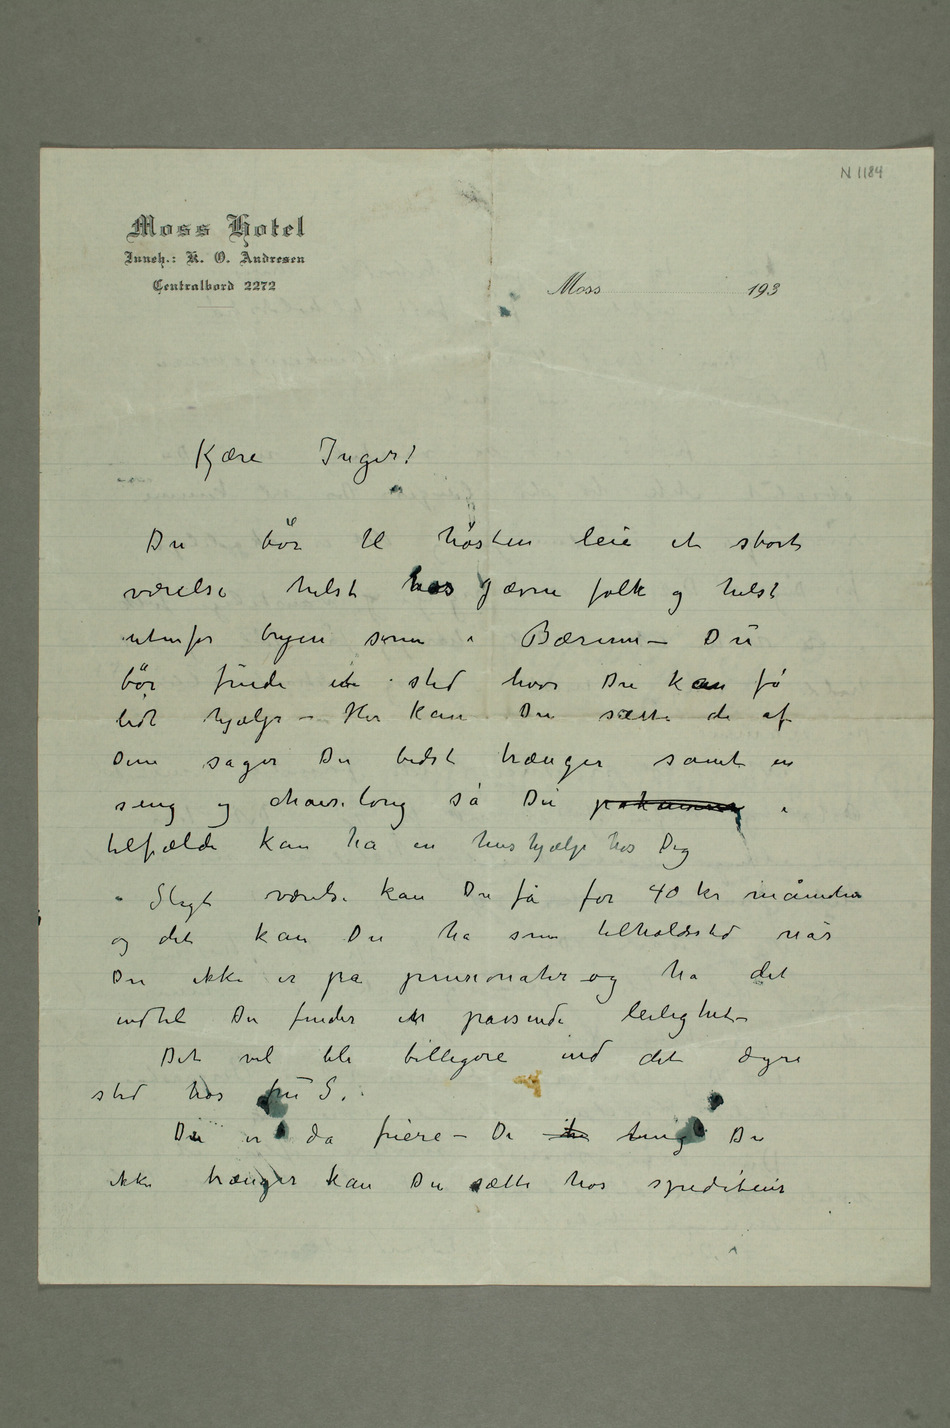 N 1184
Moss Hotel
Inneh.: K. O. Andresen
Centralbord 2272
Moss 193
Kjære Inger!
Du bör til hösten leie et stort
værelse helst hos jævne folk og helst
utenfor byen som i Bærum – Du
bör finde et sted hvor Du kan få
lidt hjælp – Her kan Du sætte de af
Dine sager Du bedst trænger samt en
seng og chaiselong så Du i
tilfælde kan ha en hushjælp hos Dig
Sligt værelse kan Du få for 40 kr måneden
og det kan Du ha som tilholdssted når
Du ikke er på pensionater og ha det
indtil Du finder en passende leilighet –
Det vil bli billigere end det dyre
sted hos fru S.
Du er da friere – De ting Du
ikke trænger kan Du sætte hos spediteur